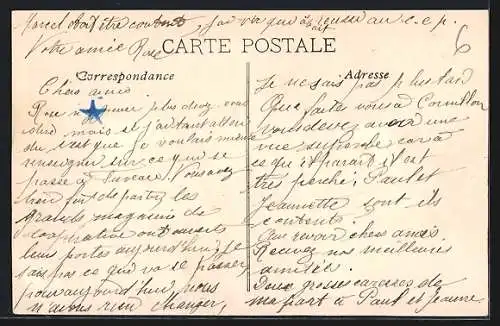 Marcel doit être content, j'ai vu que à réussi au c.e.p.
Votre amie Rose
CARTE POSTALE
Correspondance
Chers amis
Rose plus chez vous
mais si j'ai tant
du c'est que je voulais
renseigner sur ce que se
passe à Vous avez
de parler les
grands magasins de
coopérative ont ouvert
leurs portes aujourd'hui, je
sais pas ce que va se passer
pour aujourd'hui nous
n'avons rien changer,
Adresse
Je ne sais pas plus tard
Que faites vous à Cornillon
vous devez avoir une
vue superbe car à
ce qu'il parait il est
très perché, Paul et
Jeannette sont ils
contents.
Au revoir chers amis
Recevez nos meilleures
amitiés.
Deux grosses caresses de
ma part à Paul et Jeanne.
6